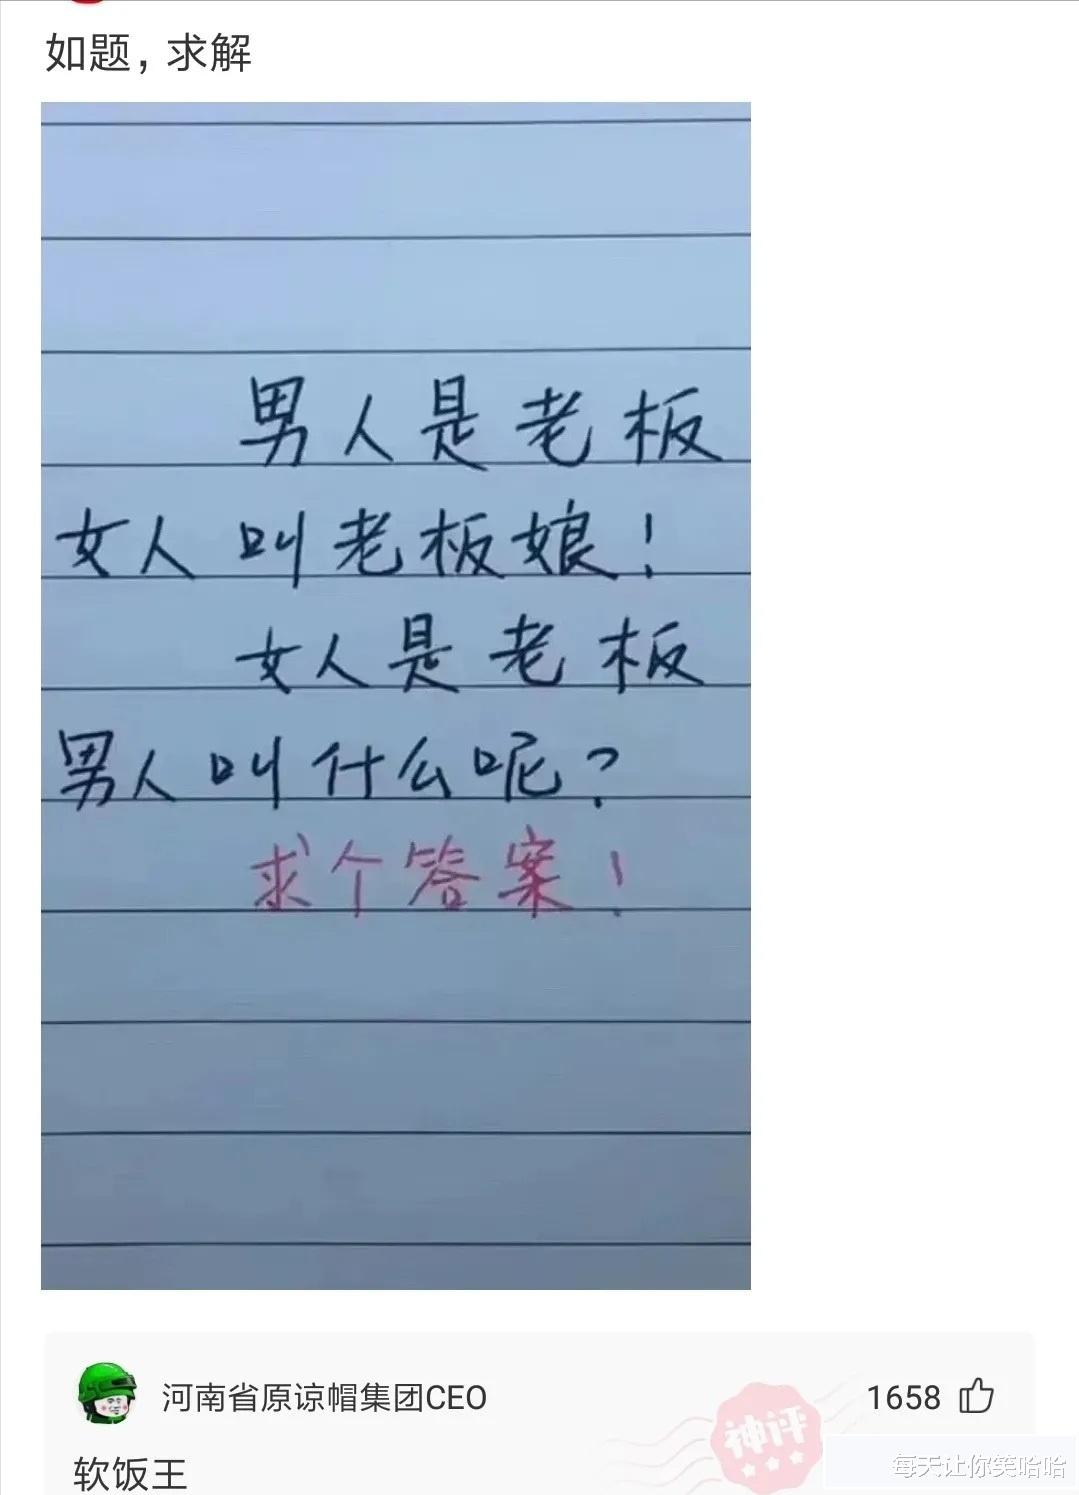 如题，求解
男人是老板
女人叫老板娘！
女人是老板
男人叫什么呢？
求个答案！
河南省原谅帽集团CEO
1658
神评
软饭王
每天让你笑哈哈